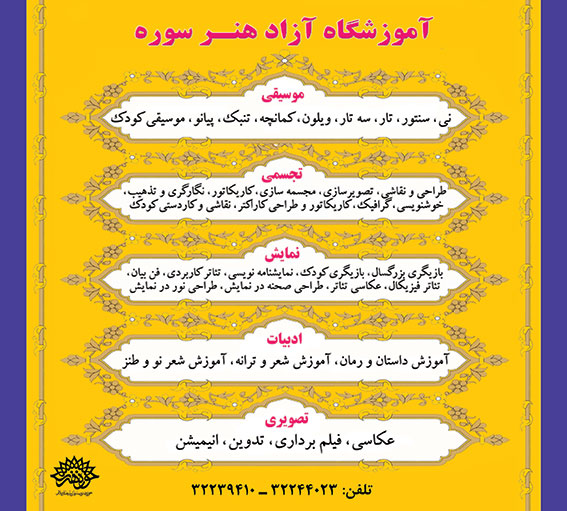 آموزشگاه آزاد هنر سوره
موسیقی
نی، سنتور، تار، سه تار، ویلون، کمانچه، تنبک، پیانو، موسیقی کودک
تجسمی
طراحی و نقاشی، تصویرسازی، مجسمه سازی، کاریکاتور، نگارگری و تذهیب،
خوشنویسی، گرافیک، کاریکاتور و طراحی کاراکتر، نقاشی و کاردستی کودک
نمایش
بازیگری بزرگسال، بازیگری کودک، نمایشنامه نویسی، تئاتر کاربردی، فن بیان،
تئاتر فیزیکال، عکاسی تئاتر، طراحی صحنه در نمایش، طراحی نور در نمایش
ادبیات
آموزش داستان و رمان، آموزش شعر و ترانه، آموزش شعر نو و طنز
تصویری
عکاسی، فیلم برداری، تدوین، انیمیشن
تلفن: ۳۲۲۴۴۰۲۳ ـ ۳۲۲۳۹۴۱۰